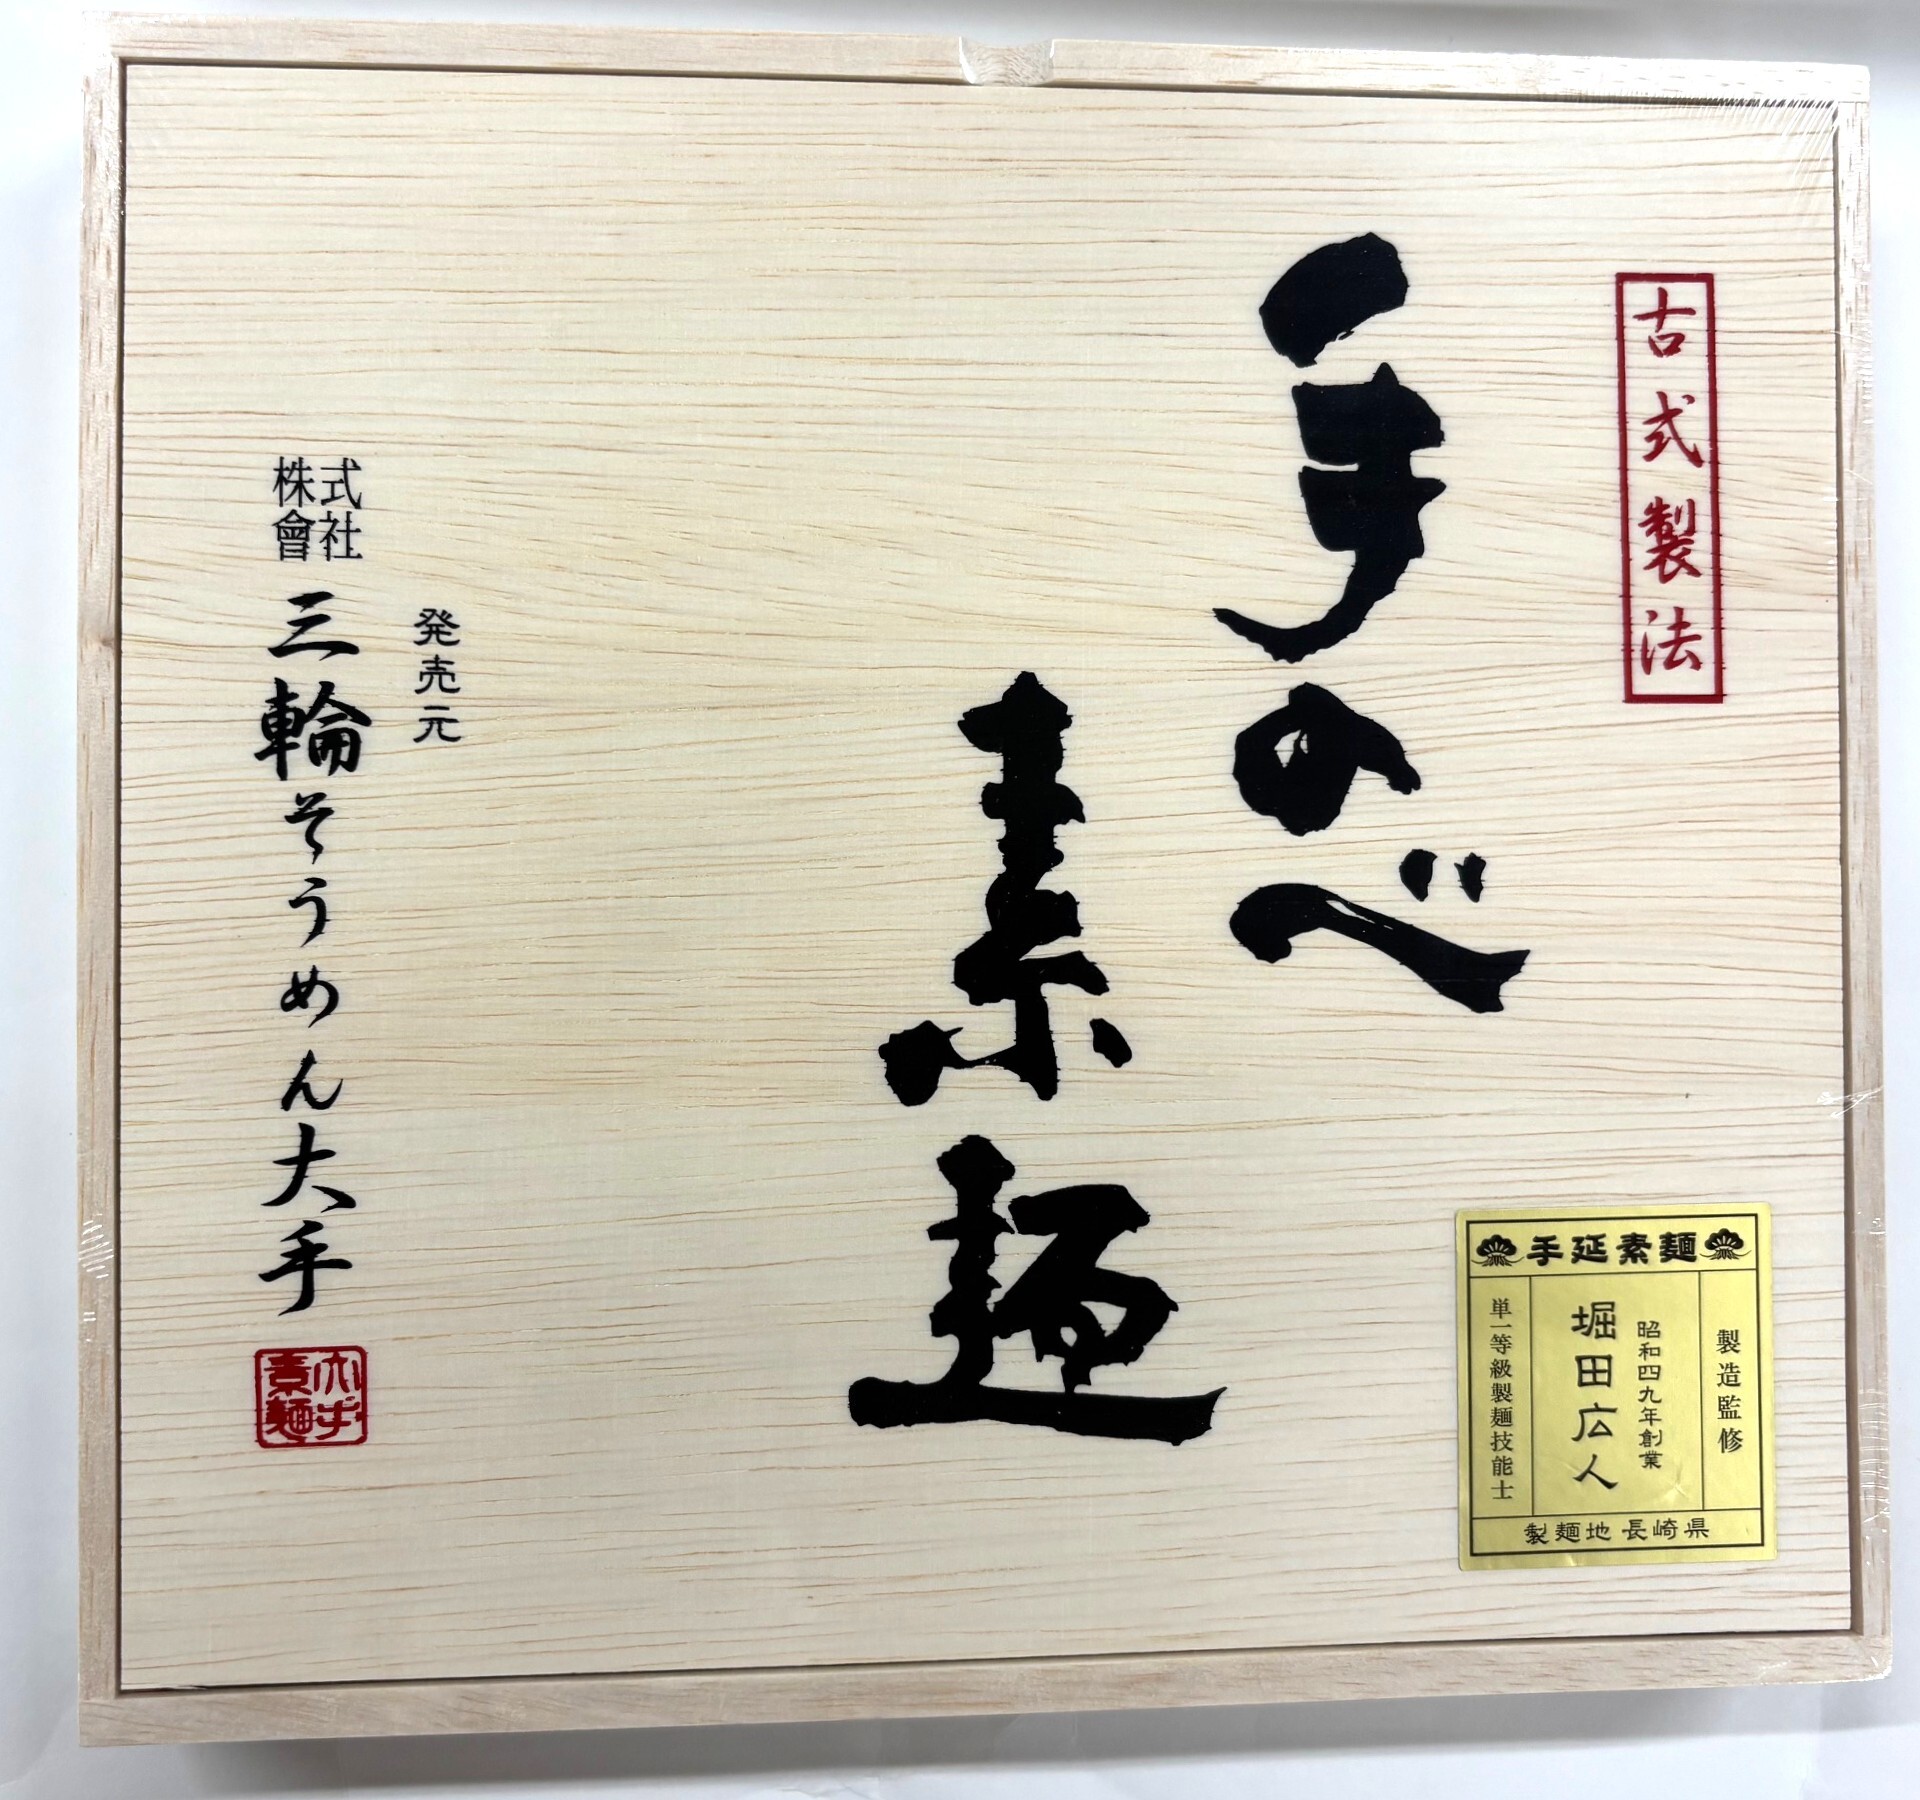 古式製法
手のべ
素麺
発売元
株式會社 三輪そうめん大手
大手素麺
手延素麺
製造監修
昭和四九年創業
堀田広人
単一等級製麺技能士
製麺地 長崎県